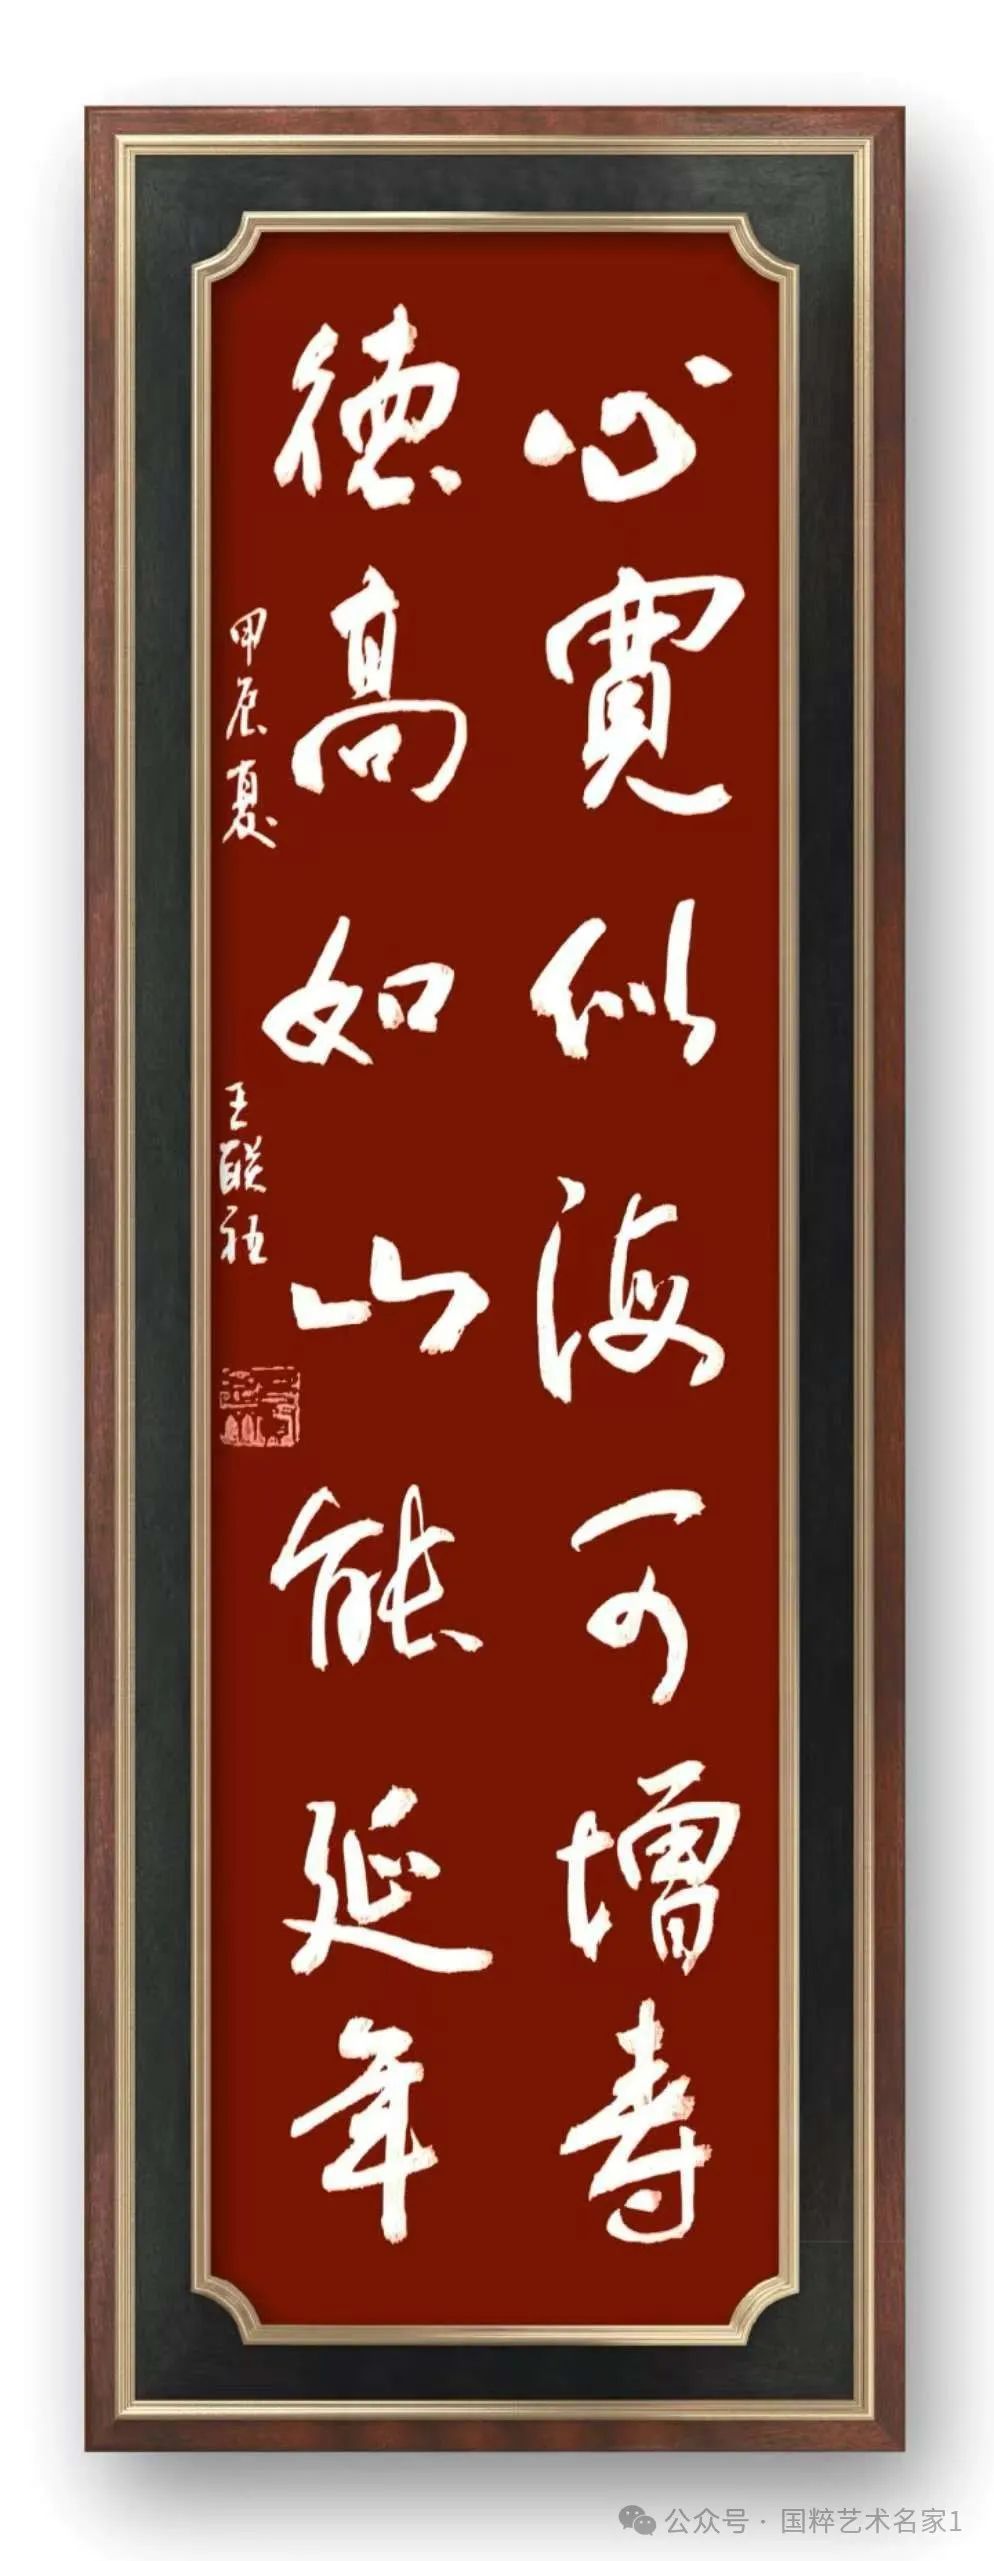 心寬似海可增壽
德高如山能延年
甲辰夏
王联社
公众号 · 国粹艺术名家1